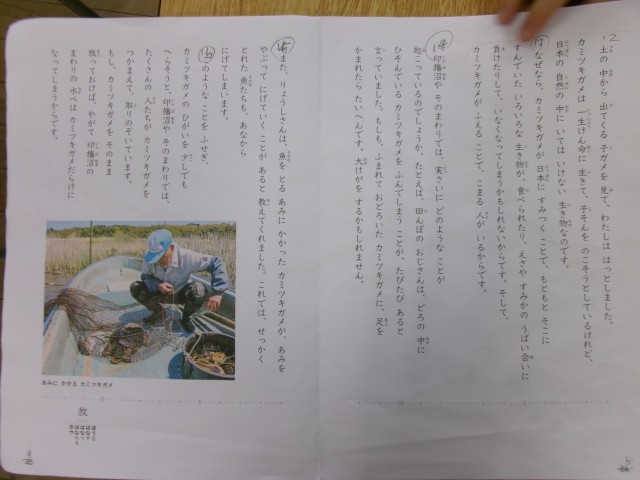 12
土の 中から 出てくる 子ガメを 見て、わたしは はっとしました。
カミツキガメは 一生けん命に 生きて、子そんを のこそうとしているけれど、
日本の 自然の 中に いては いけない 生き物なのです。
13 なぜなら、カミツキガメが 日本に すみつくことで、もともと そこに
すんでいた いろいろな 生き物が、食べられたり、えさや すみかの うばい合いに
負けたりして、いなくなってしまうかもしれないからです。そして、
カミツキガメが ふえることで、こまる 人が いるからです。
14 印旛沼や そのまわりでは、実さいに どのような ことが
起こっているのでしょうか。たとえば、田んぼの おじさんは、どろの 中に
ひそんでいる カミツキガメを ふんでしまう ことが、たびたび あると
言っていました。もしも、ふまれて おどろいた カミツキガメに、足を
かまれたら たいへんです。大けがを するかもしれません。
15 また、りょうしさんは、魚を とる あみに かかった カミツキガメが、あみを
やぶって にげていく ことが あると 教えてくれました。これでは、せっかく
とれた 魚たちも、あなから
にげてしまいます。
16 このような ことを ふせぎ、
カミツキガメの ひがいを 少しでも
へらそうと、印旛沼や そのまわりでは、
たくさんの 人たちが カミツキガメを
つかまえて、取りのぞいています。
もし、カミツキガメを そのまま
放っておけば、やがて 印旛沼の
まわりの 水べは カミツキガメだらけに
なってしまうからです。
あみに かかる カミツキガメ
放
ほうる
はなす
はなつ
はなれる
ホウ